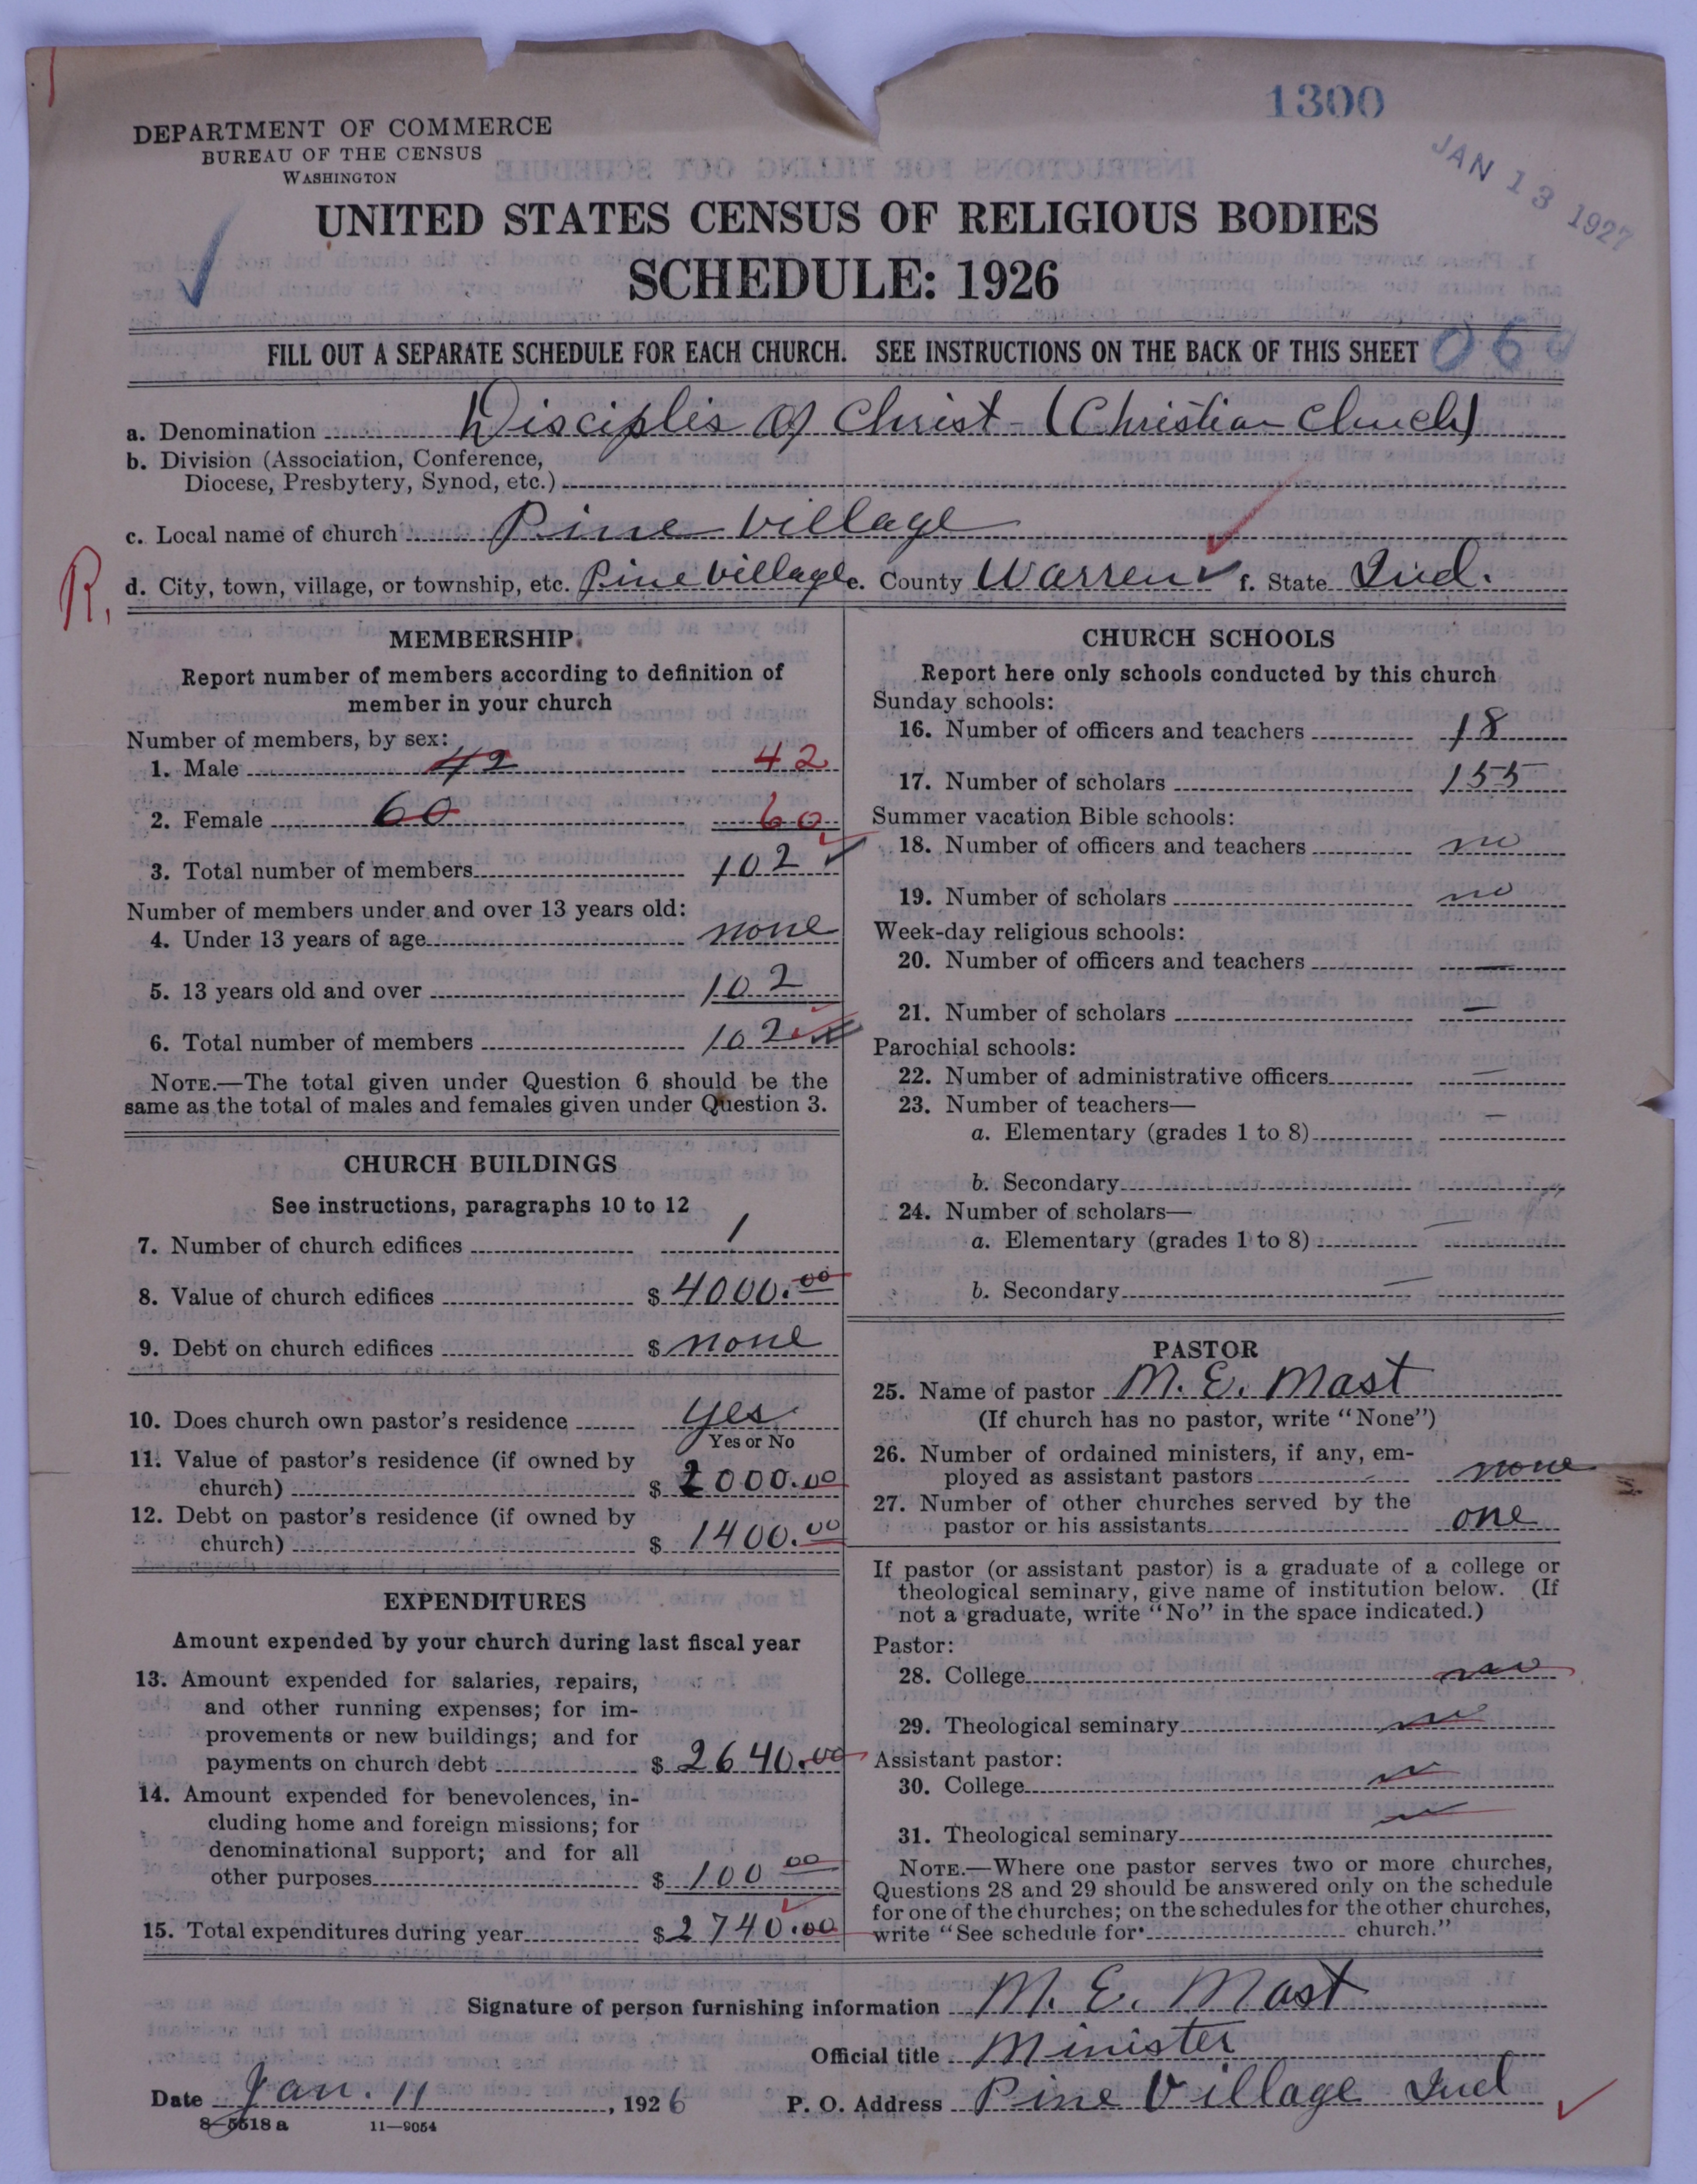 1300
DEPARTMENT OF COMMERCE
BUREAU OF THE CENSUS
WASHINGTON
JAN 13 1927
UNITED STATES CENSUS OF RELIGIOUS BODIES
SCHEDULE: 1926
FILL OUT A SEPARATE SCHEDULE FOR EACH CHURCH. SEE INSTRUCTIONS ON THE BACK OF THIS SHEET
a. Denomination Disciples of Christ - (Christian Church)
b. Division (Association, Conference,
Diocese, Presbytery, Synod, etc.)
c. Local name of church Pine Village
R.
d. City, town, village, or township, etc. Pine Village e. County Warren f. State Ind.
MEMBERSHIP
Report number of members according to definition of
member in your church
Number of members, by sex:
1. Male 42 42
2. Female 60 60
3. Total number of members 102
Number of members under and over 13 years old:
4. Under 13 years of age none
5. 13 years old and over 102
6. Total number of members 102
NOTE.—The total given under Question 6 should be the
same as the total of males and females given under Question 3.
CHURCH BUILDINGS
See instructions, paragraphs 10 to 12
7. Number of church edifices 1
8. Value of church edifices $ 4000.00
9. Debt on church edifices $ none
10. Does church own pastor's residence yes
Yes or No
11. Value of pastor's residence (if owned by
church) $ 2000.00
12. Debt on pastor's residence (if owned by
church) $ 1400.00
EXPENDITURES
Amount expended by your church during last fiscal year
13. Amount expended for salaries, repairs,
and other running expenses; for im-
provements or new buildings; and for
payments on church debt $ 2640.00
14. Amount expended for benevolences, in-
cluding home and foreign missions; for
denominational support; and for all
other purposes $ 100 00
15. Total expenditures during year $ 2740.00
CHURCH SCHOOLS
Report here only schools conducted by this church
Sunday schools:
16. Number of officers and teachers 18
17. Number of scholars 155
Summer vacation Bible schools:
18. Number of officers and teachers no
19. Number of scholars no
Week-day religious schools:
20. Number of officers and teachers —
21. Number of scholars —
Parochial schools:
22. Number of administrative officers —
23. Number of teachers—
a. Elementary (grades 1 to 8) —
b. Secondary
24. Number of scholars—
a. Elementary (grades 1 to 8) —
b. Secondary —
PASTOR
25. Name of pastor M. E. Mast
(If church has no pastor, write "None")
26. Number of ordained ministers, if any, em-
ployed as assistant pastors none
27. Number of other churches served by the
pastor or his assistants one
If pastor (or assistant pastor) is a graduate of a college or
theological seminary, give name of institution below. (If
not a graduate, write "No" in the space indicated.)
Pastor:
28. College no
29. Theological seminary no
Assistant pastor:
30. College
31. Theological seminary
NOTE.—Where one pastor serves two or more churches,
Questions 28 and 29 should be answered only on the schedule
for one of the churches; on the schedules for the other churches,
write "See schedule for church."
Signature of person furnishing information M. E. Mast
Official title Minister
Date Jan. 11, 1926 P. O. Address Pine Village Ind
8—5518 a 11—9054